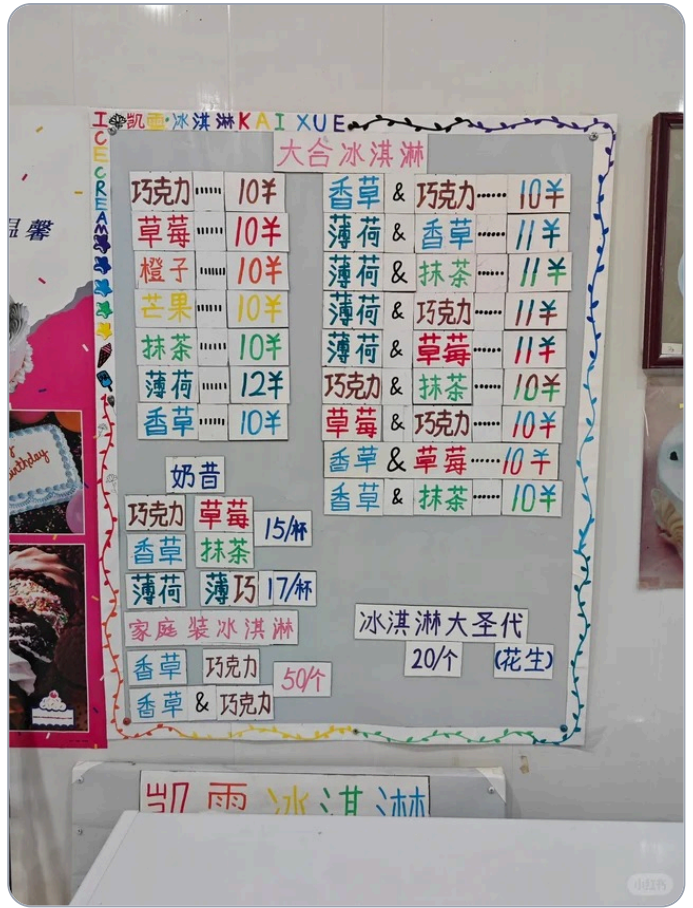 凯雪·冰淇淋 KAI XUE
ICE CREAM
温馨
大合冰淇淋
巧克力……10¥
草莓……10¥
橙子……10¥
芒果……10¥
抹茶……10¥
薄荷……12¥
香草……10¥
香草 & 巧克力……10¥
薄荷 & 香草……11¥
薄荷 & 抹茶……11¥
薄荷 & 巧克力……11¥
薄荷 & 草莓……11¥
巧克力 & 抹茶……10¥
草莓 & 巧克力……10¥
香草 & 草莓……10¥
香草 & 抹茶……10¥
奶昔
巧克力 草莓
香草 抹茶
15/杯
薄荷 薄巧 17/杯
家庭装冰淇淋
香草 巧克力
香草 & 巧克力
50/个
冰淇淋大圣代
20/个 (花生)
凯雪冰淇淋
小红书